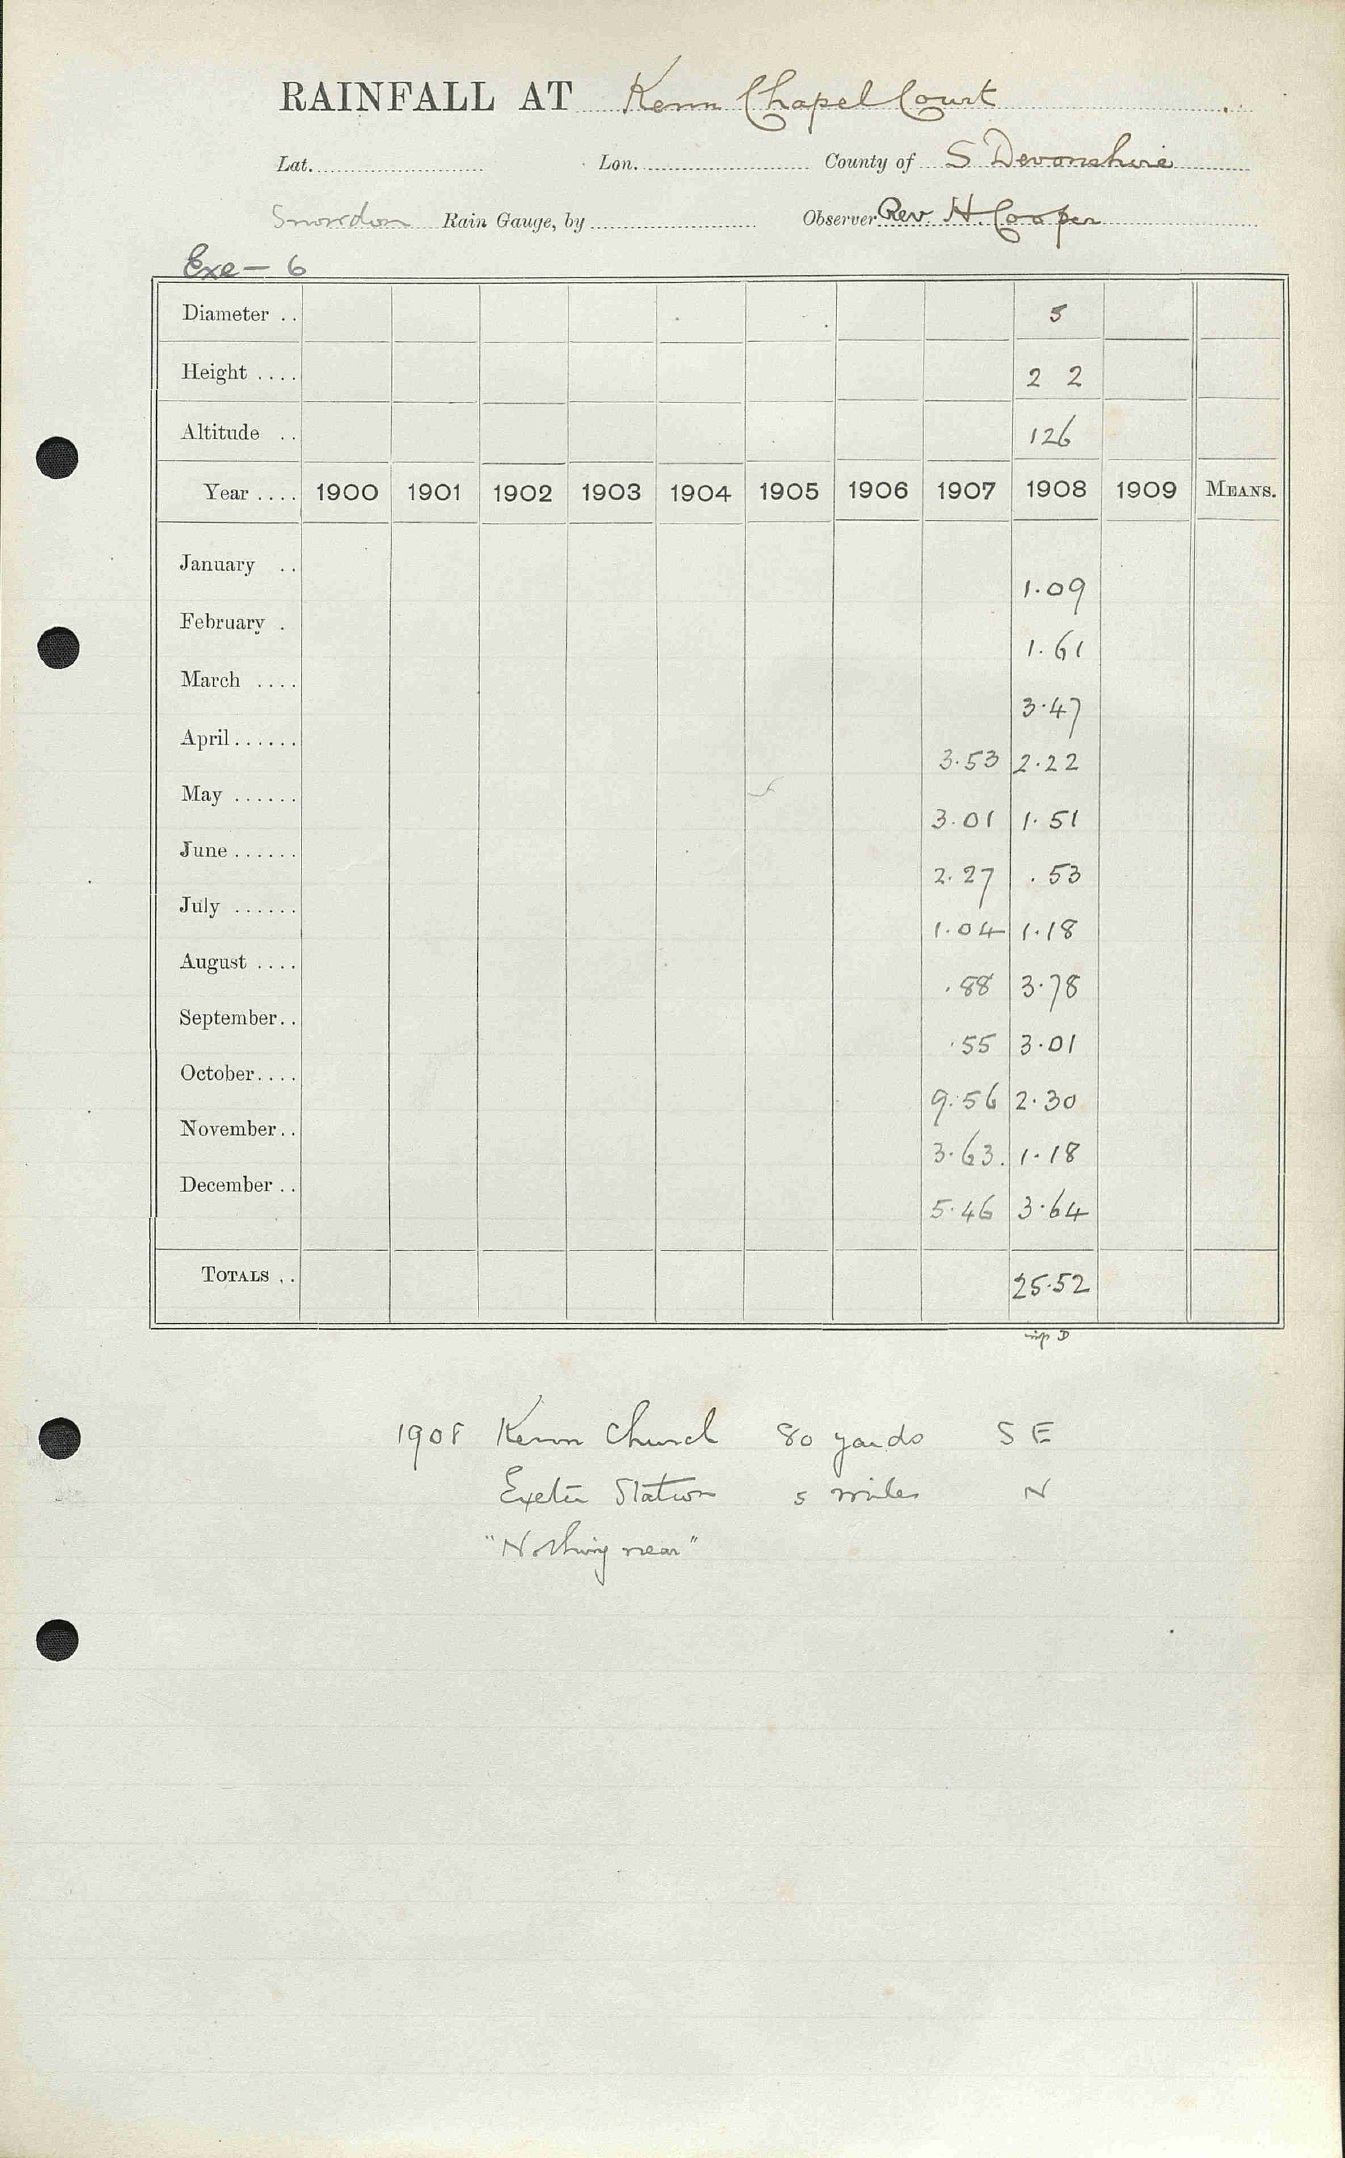 RAINFALL AT Kenn Chapel Court
Lat. Lon. County of S Devonshire
Snowdon Rain Gauge, by Observer Rev. H. Cooper
Exe - 6
Diameter .. 5
Height .... 2 2
Altitude .. 126
Year .... 1900 1901 1902 1903 1904 1905 1906 1907 1908 1909 MEANS.
January .. 1.09
February . 1.61
March .... 3.47
April...... 3.53 2.22
May ...... 3.01 1.51
June ...... 2.27 .53
July ...... 1.04 1.18
August .... .88 3.78
September.. .55 3.01
October.... 9.56 2.30
November.. 3.63. 1.18
December .. 5.46 3.64
TOTALS .. 25.52
D
1908 Kenn Church 80 yards S E
Exeter Station 5 miles N
"Nothing near"